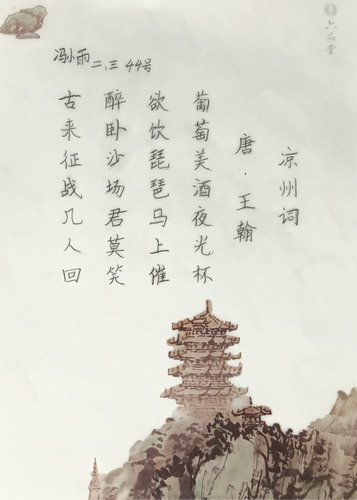 凉州词
唐·王翰
葡萄美酒夜光杯
欲饮琵琶马上催
醉卧沙场君莫笑
古来征战几人回
冯小雨 二.三 44号
六品堂